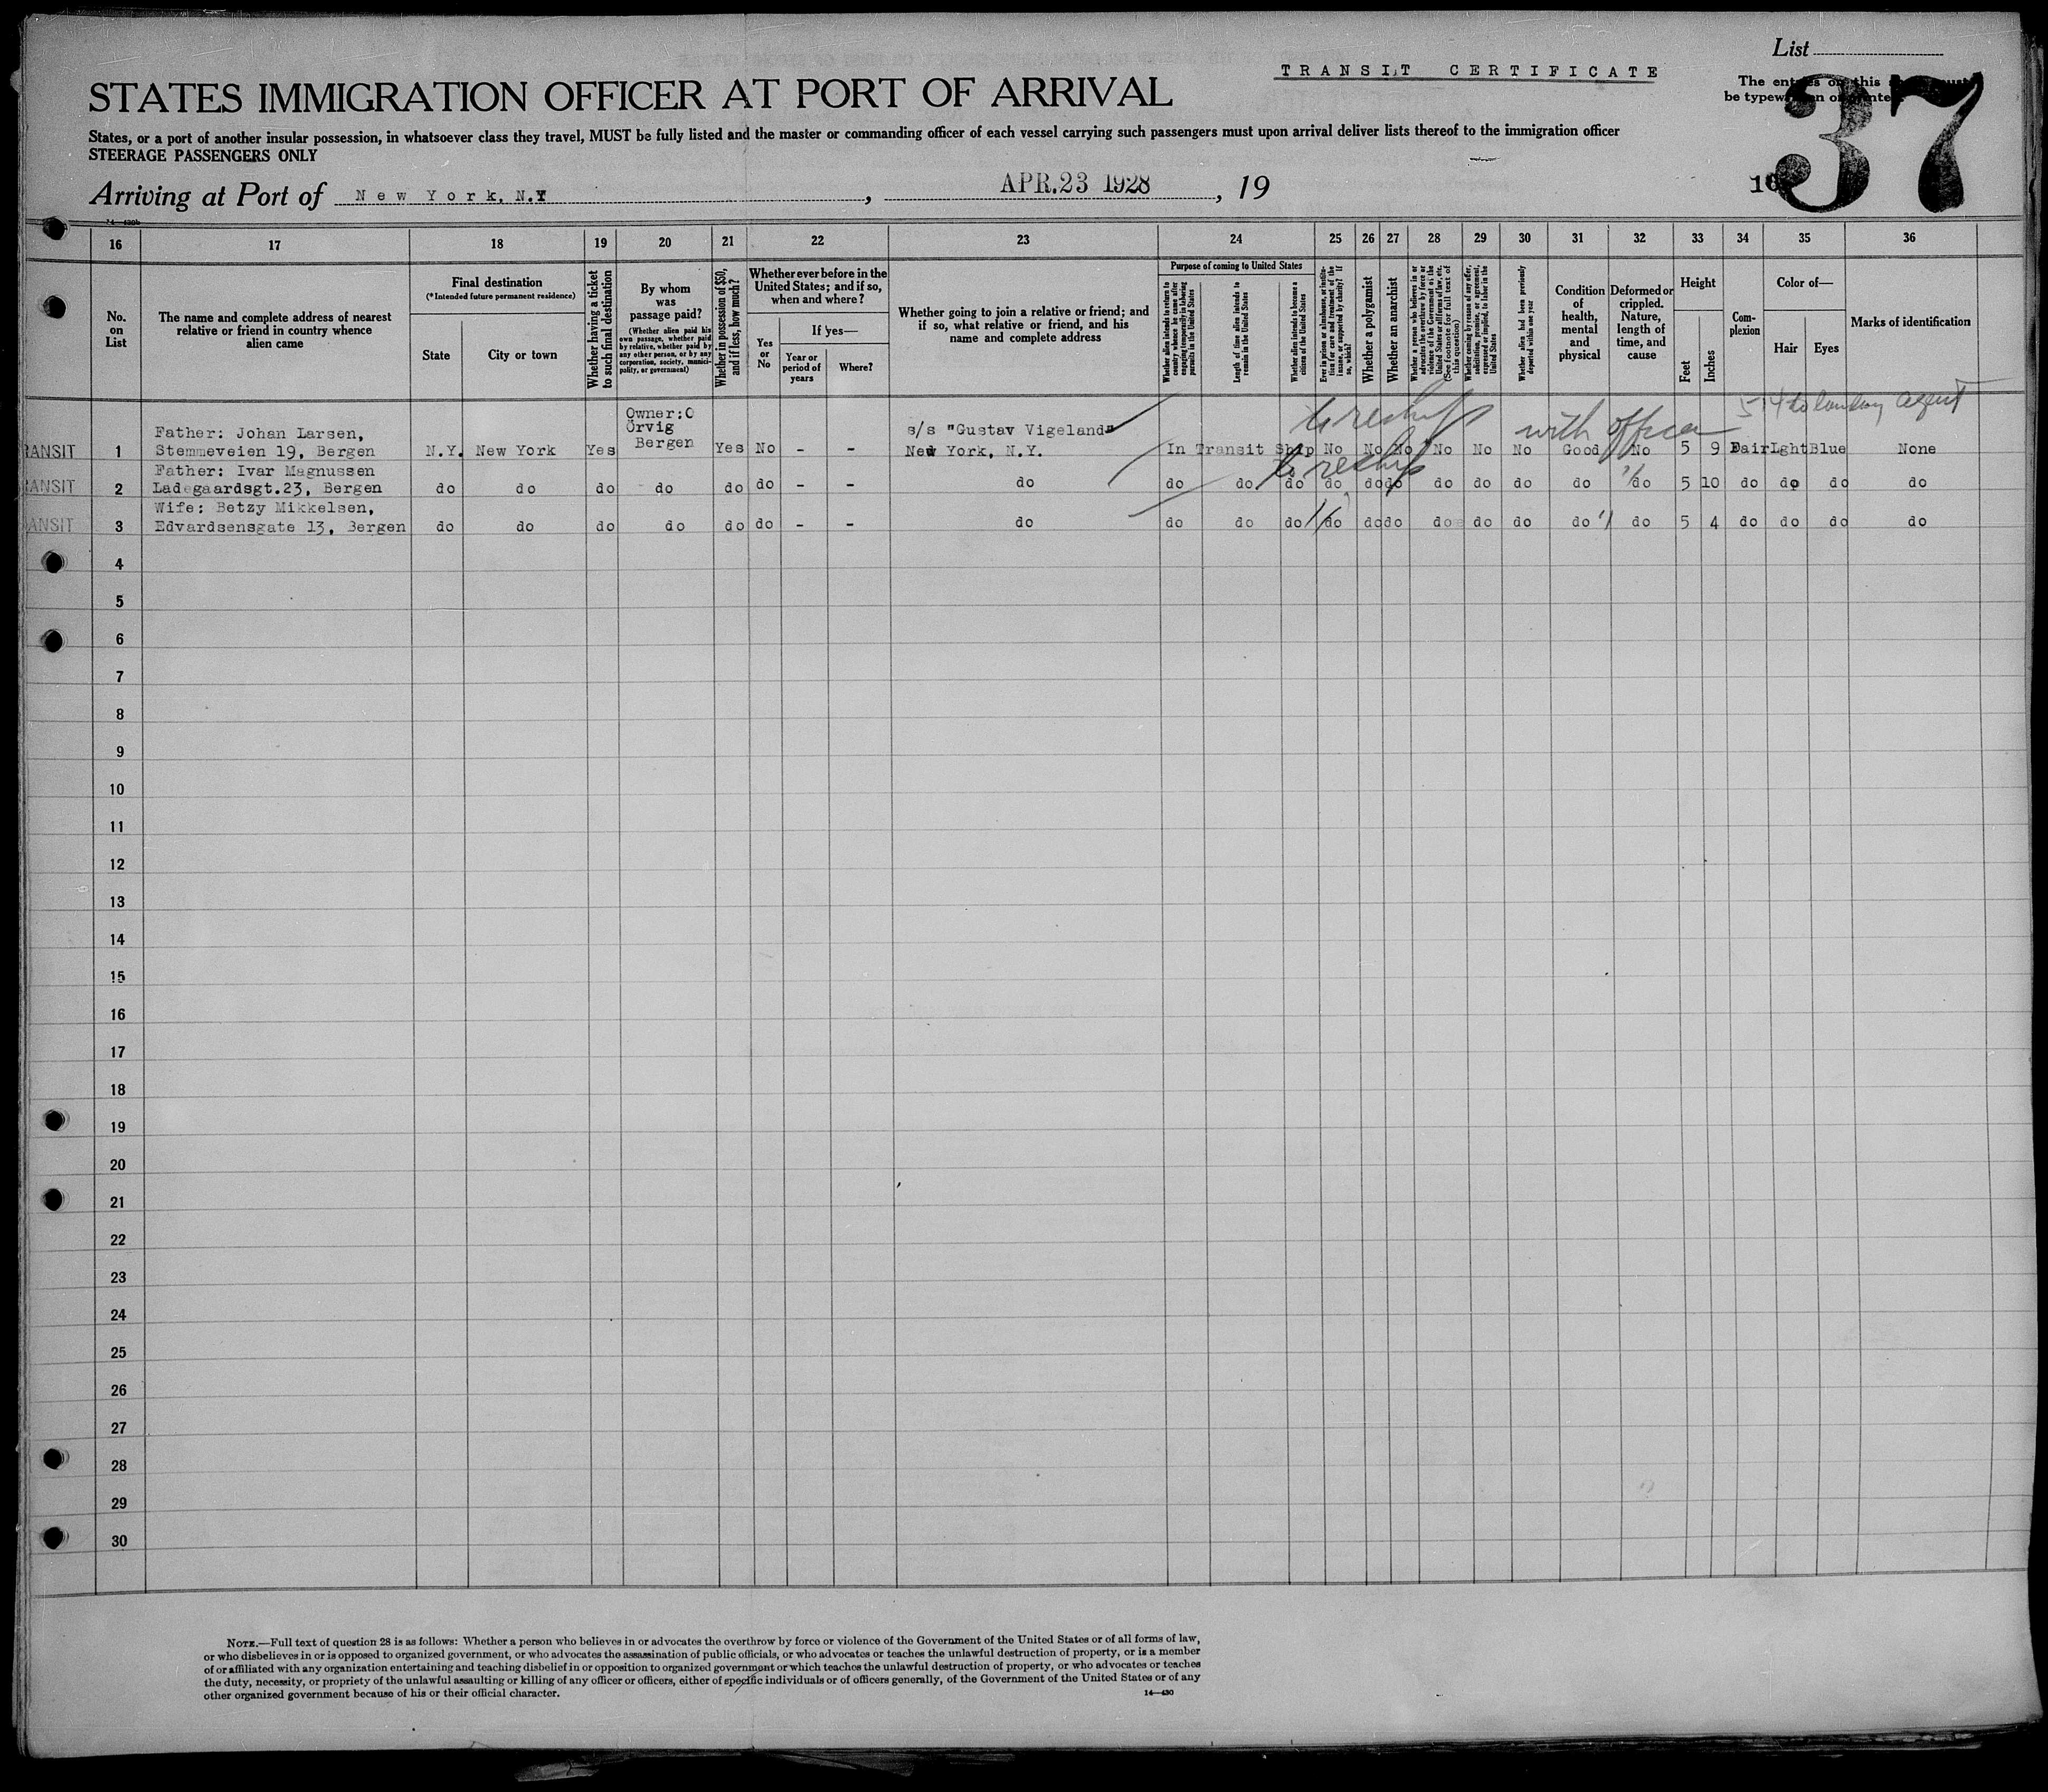 List
TRANSIT CERTIFICATE
STATES IMMIGRATION OFFICER AT PORT OF ARRIVAL
The entries on this must
be typewritten or printed
37
States, or a port of another insular possession, in whatsoever class they travel, MUST be fully listed and the master or commanding officer of each vessel carrying such passengers must upon arrival deliver lists thereof to the immigration officer
STEERAGE PASSENGERS ONLY
Arriving at Port of New York, N.Y , APR.23 1928 , 19
16 17 18 19 20 21 22 23 24 25 26 27 28 29 30 31 32 33 34 35 36
No. on List
The name and complete address of nearest relative or friend in country whence alien came
Final destination
(*Intended future permanent residence)
State
City or town
Whether having a ticket to such final destination
By whom was passage paid?
(Whether alien paid his own passage, whether paid by relative, whether paid by any other person, or by any corporation, society, municipality, or government)
Whether in possession of $50, and if less, how much?
Whether ever before in the United States; and if so, when and where?
Yes or No
If yes—
Year or period of years
Where?
Whether going to join a relative or friend; and if so, what relative or friend, and his name and complete address
Purpose of coming to United States
Whether alien intends to return to country whence he came after engaging temporarily in laboring pursuits in the United States
Length of time alien intends to remain in the United States
Whether alien intends to become a citizen of the United States
Ever in prison or almshouse, or institution for care and treatment of the insane, or supported by charity? If so, which?
Whether a polygamist
Whether an anarchist
Whether a person who believes in or advocates the overthrow by force or violence of the Government of the United States or all forms of law, etc. (See footnote for full text of this question)
Whether coming by reason of any offer, solicitation, promise, or agreement, expressed or implied, to labor in the United States
Whether alien had been previously deported within one year
Condition of health, mental and physical
Deformed or crippled. Nature, length of time, and cause
Height
Feet
Inches
Complexion
Color of—
Hair
Eyes
Marks of identification
to reship with officer
RANSIT 1 Father: Johan Larsen, Stemmeveien 19, Bergen N.Y. New York Yes Owner: O Örvig Bergen Yes No - - s/s "Gustav Vigeland" New York, N.Y. In Transit Ship No No No No No No Good No 5 9 Fair Lght Blue None
to reship
RANSIT 2 Father: Ivar Magnussen Ladegaardsgt.23, Bergen do do do do do do - - do do do do do do do do do do do do 5 10 do do do do
ANSIT 3 Wife: Betzy Mikkelsen, Edvardsensgate 13, Bergen do do do do do do - - do do do do do do do do do do do do 5 4 do do do do
4
5
6
7
8
9
10
11
12
13
14
15
16
17
18
19
20
21
22
23
24
25
26
27
28
29
30
NOTE.—Full text of question 28 is as follows: Whether a person who believes in or advocates the overthrow by force or violence of the Government of the United States or of all forms of law,
or who disbelieves in or is opposed to organized government, or who advocates the assassination of public officials, or who advocates or teaches the unlawful destruction of property, or is a member
of or affiliated with any organization entertaining and teaching disbelief in or opposition to organized government or which teaches the unlawful destruction of property, or who advocates or teaches
the duty, necessity, or propriety of the unlawful assaulting or killing of any officer or officers, either of specific individuals or of officers generally, of the Government of the United States or of any
other organized government because of his or their official character.
14—430